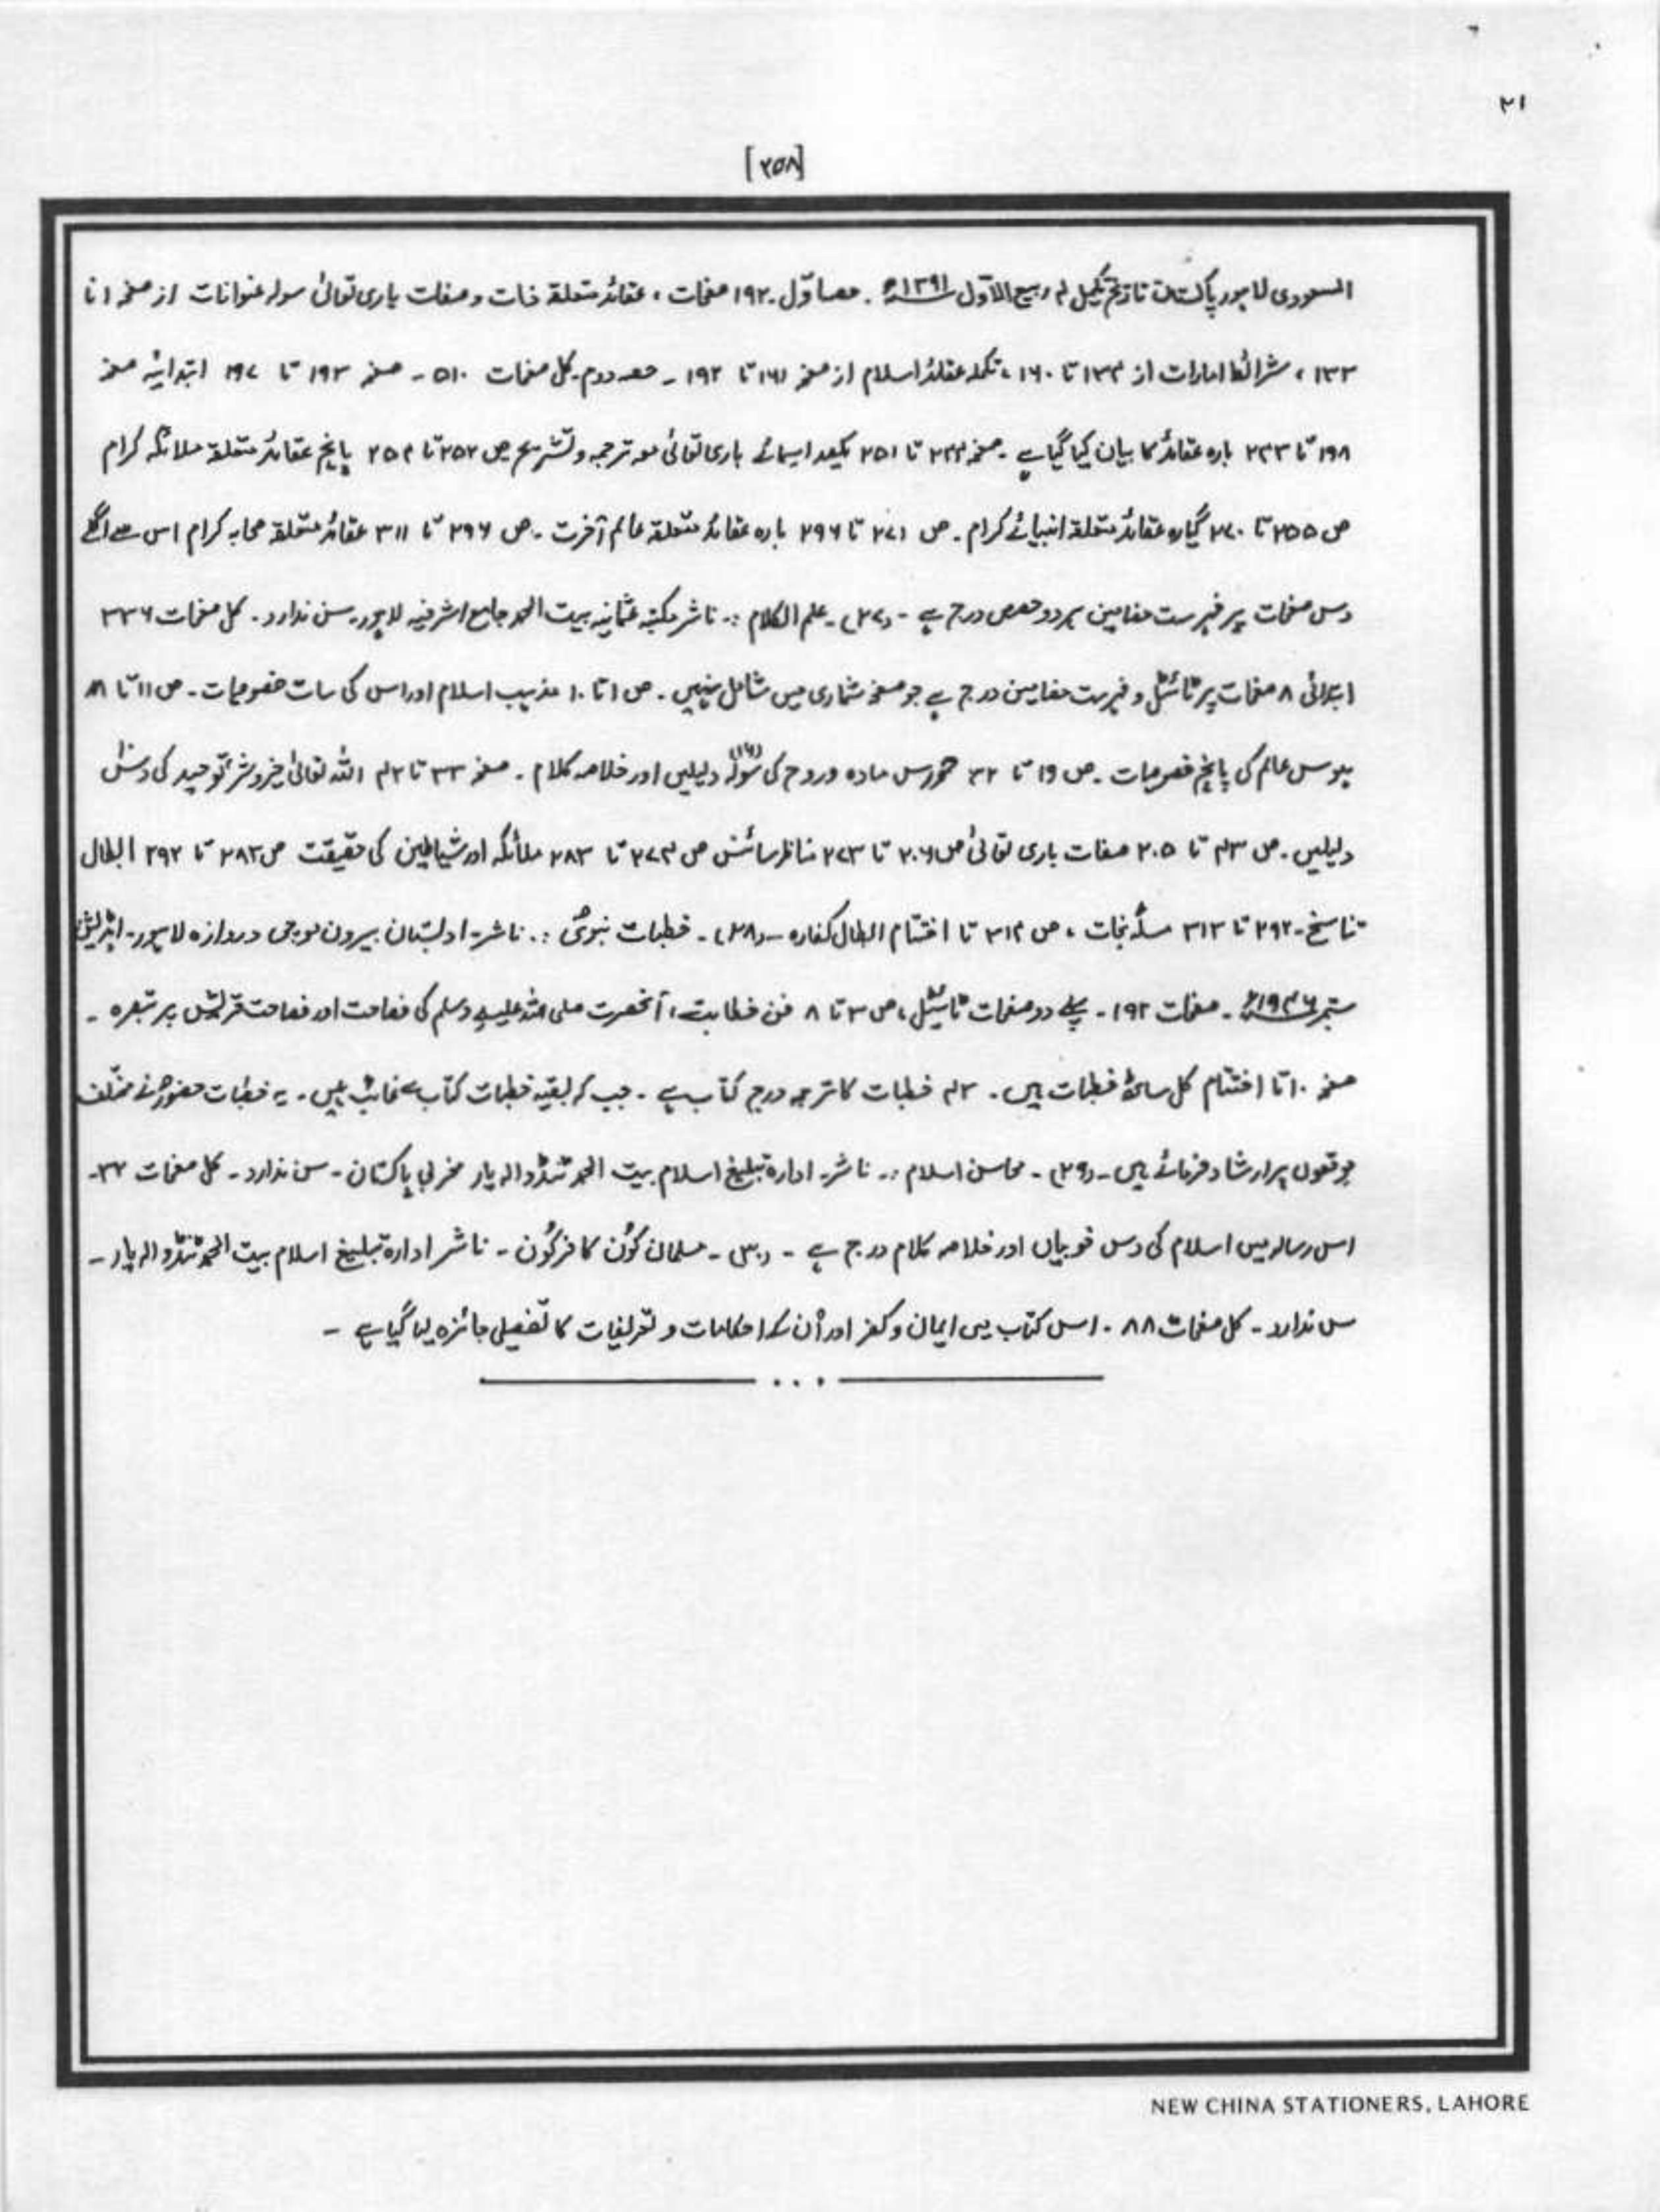 ۲۱
[۲۵۸]
السعودی لاہور پاکستان تاریخ تکمیل ۴ ربیع الاول ۱۳۹۱ھ ۔ حصہ اوّل ۔ ۱۹۲ صفحات ، عقائد متعلقہ ذات و صفات باری تعالیٰ سولہ عنوانات از صفحہ ۱ تا
۱۳۳ ، شرائط امارات از ۱۳۴ تا ۱۶۰ ، تکملہ عقائد اسلام از صفحہ ۱۶۱ تا ۱۹۲ ۔ حصہ دوم ۔ کل صفحات ۵۱۰ ۔ صفحہ ۱۹۳ تا ۱۹۷ ابتدائیہ صفحہ
۱۹۸ تا ۲۳۳ بارہ عقائد کا بیان کیا گیا ہے ۔ صفحہ ۲۳۴ تا ۲۵۱ یکصد اسمائے باری تعالیٰ معہ ترجمہ و تشریح ص ۲۵۲ تا ۲۵۴ پانچ عقائد متعلقہ ملائکہ کرام
ص ۲۵۵ تا ۲۷۰ گیارہ عقائد متعلقہ انبیائے کرام ۔ ص ۲۷۱ تا ۲۹۶ بارہ عقائد متعلقہ عالم آخرت ۔ ص ۲۹۶ تا ۳۱۱ عقائد متعلقہ صحابہ کرام اس سے اگلے
دس صفحات پر فہرست مضامین ہر دو حصص درج ہے ۔ (۲۷) ۔ علم الکلام :۔ ناشر مکتبہ عثمانیہ بیت الحمد جامع اشرفیہ لاہور ۔ سن ندارد ۔ کل صفحات ۳۳۶
ابتدائی ۸ صفحات پر ٹائٹل و فہرست مضامین درج ہے جو صفحہ شماری میں شامل نہیں ۔ ص ۱ تا ۱۰ مذہب اسلام اور اس کی سات خصوصیات ۔ ص ۱۱ تا ۱۸
عالم کی پانچ خصوصیات ۔ ص ۱۹ تا ۳۲ مادہ و روح کی سولہ (۱۶) دلیلیں اور خلاصہ کلام ۔ صفحہ ۳۳ تا ۴۲ اللہ تعالیٰ توحید کی دس
دلیلیں ۔ ص ۴۳ تا ۲۰۵ صفات باری تعالیٰ ص ۲۰۶ تا ۲۷۳ سائنس ص ۲۷۴ تا ۲۸۳ ملائکہ اور شیاطین کی حقیقت ص ۲۸۳ تا ۲۹۲ ابطال
تناسخ ۔ ۲۹۲ تا ۳۱۳ مسئلہ نجات ، ص ۳۱۴ تا اختتام ابطال کفارہ ۔ (۲۸) ۔ خطبات نبویؐ :۔ ناشر ۔ ادبستان بیرون موچی دروازہ لاہور ۔ ایڈیشن
ستمبر ۱۹۴۶ء ۔ صفحات ۱۹۲ ۔ پہلے دو صفحات ٹائیٹل ، ص ۳ تا ۸ فن خطابت ، آنحضرت صلی اللہ علیہ وسلم کی فصاحت اور فصاحت قریش پر تبصرہ ۔
صفحہ ۱۰ تا اختتام کل خطبات ہیں ۔ ۴۲ خطبات کا ترجمہ درج کتاب ہے ۔ جب کہ بقیہ خطبات کتاب سے غائب ہیں ۔ یہ خطبات حضورؐ نے مختلف
موقعوں پر ارشاد فرمائے ہیں ۔ (۲۹) ۔ محاسن اسلام :۔ ناشر ۔ ادارہ تبلیغ اسلام بیت الحمد ٹنڈو الہ یار مغربی پاکستان ۔ سن ندارد ۔ کل صفحات ۳۲ ۔
اس رسالہ میں اسلام کی دس خوبیاں اور خلاصہ کلام درج ہے ۔ (۳۰) ۔ مسلمان کون کافر کون ۔ ناشر ادارہ تبلیغ اسلام بیت الحمد ٹنڈو الہ یار ۔
سن ندارد ۔ کل صفحات ۸۸ ۔ اس کتاب میں ایمان و کفر اور اُن کے احکامات و تعریفات کا تفصیلی جائزہ لیا گیا ہے ۔
NEW CHINA STATIONERS, LAHORE